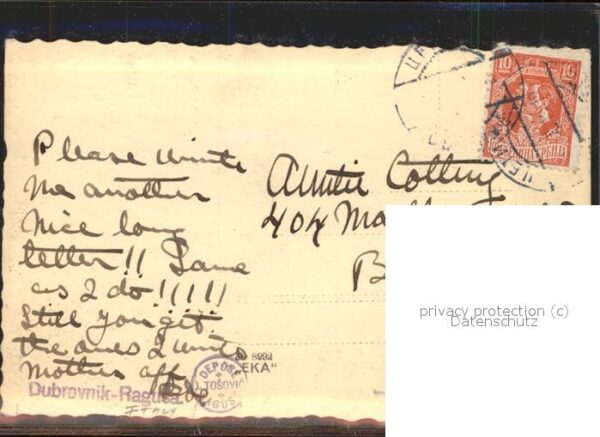 Please write
me another
nice long
letter!! Same
as I do!!!!!
Still you get
the ones I write
Mother
Auntie
404
B
10 10
№ 8992
"EKA"
DEPOSE
J. TOŠOVIĆ
RAGUSA
Dubrovnik-Ragusa
ITALY
privacy protection (c)
Datenschutz